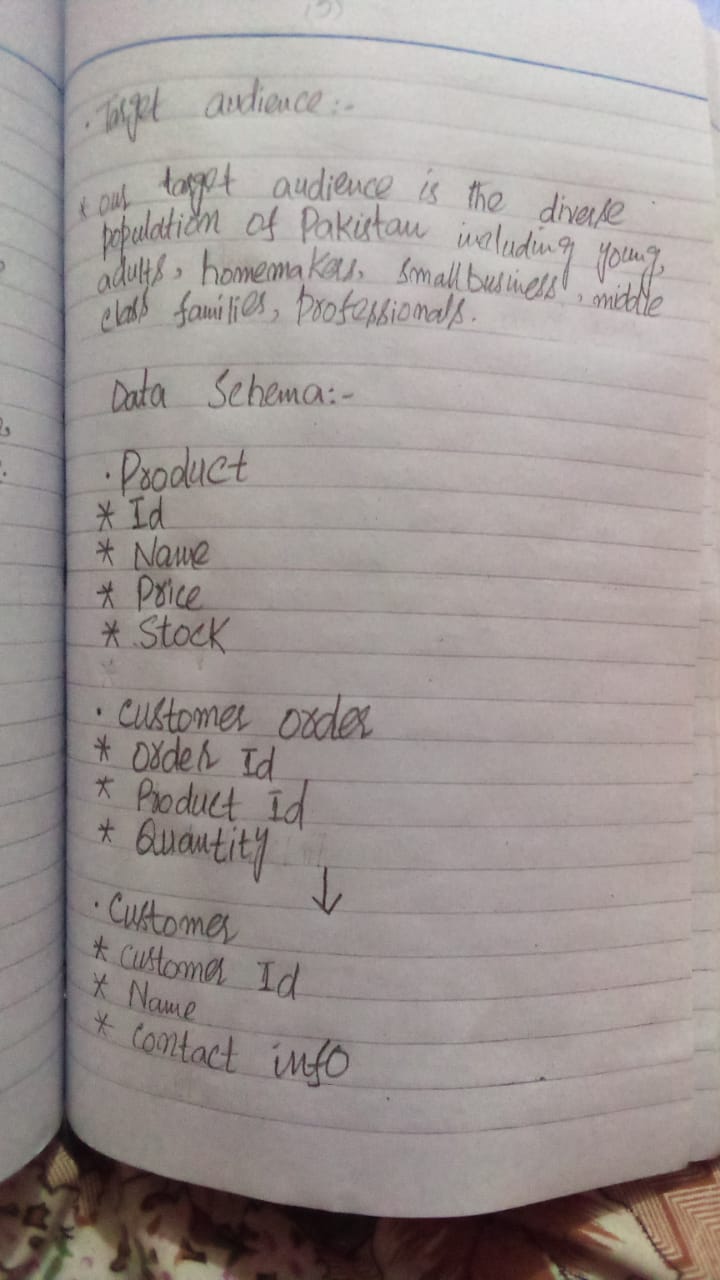 (3)
. Target audience :-
* our target audience is the diverse
population of Pakistan including young,
adults, homemakers, small business, middle
class families, professionals.
Data Schema:-
· Product
* Id
* Name
* Price
* Stock
· Customer order
* Order Id
* Product Id
* Quantity
↓
· Customer
* Customer Id
* Name
* Contact info